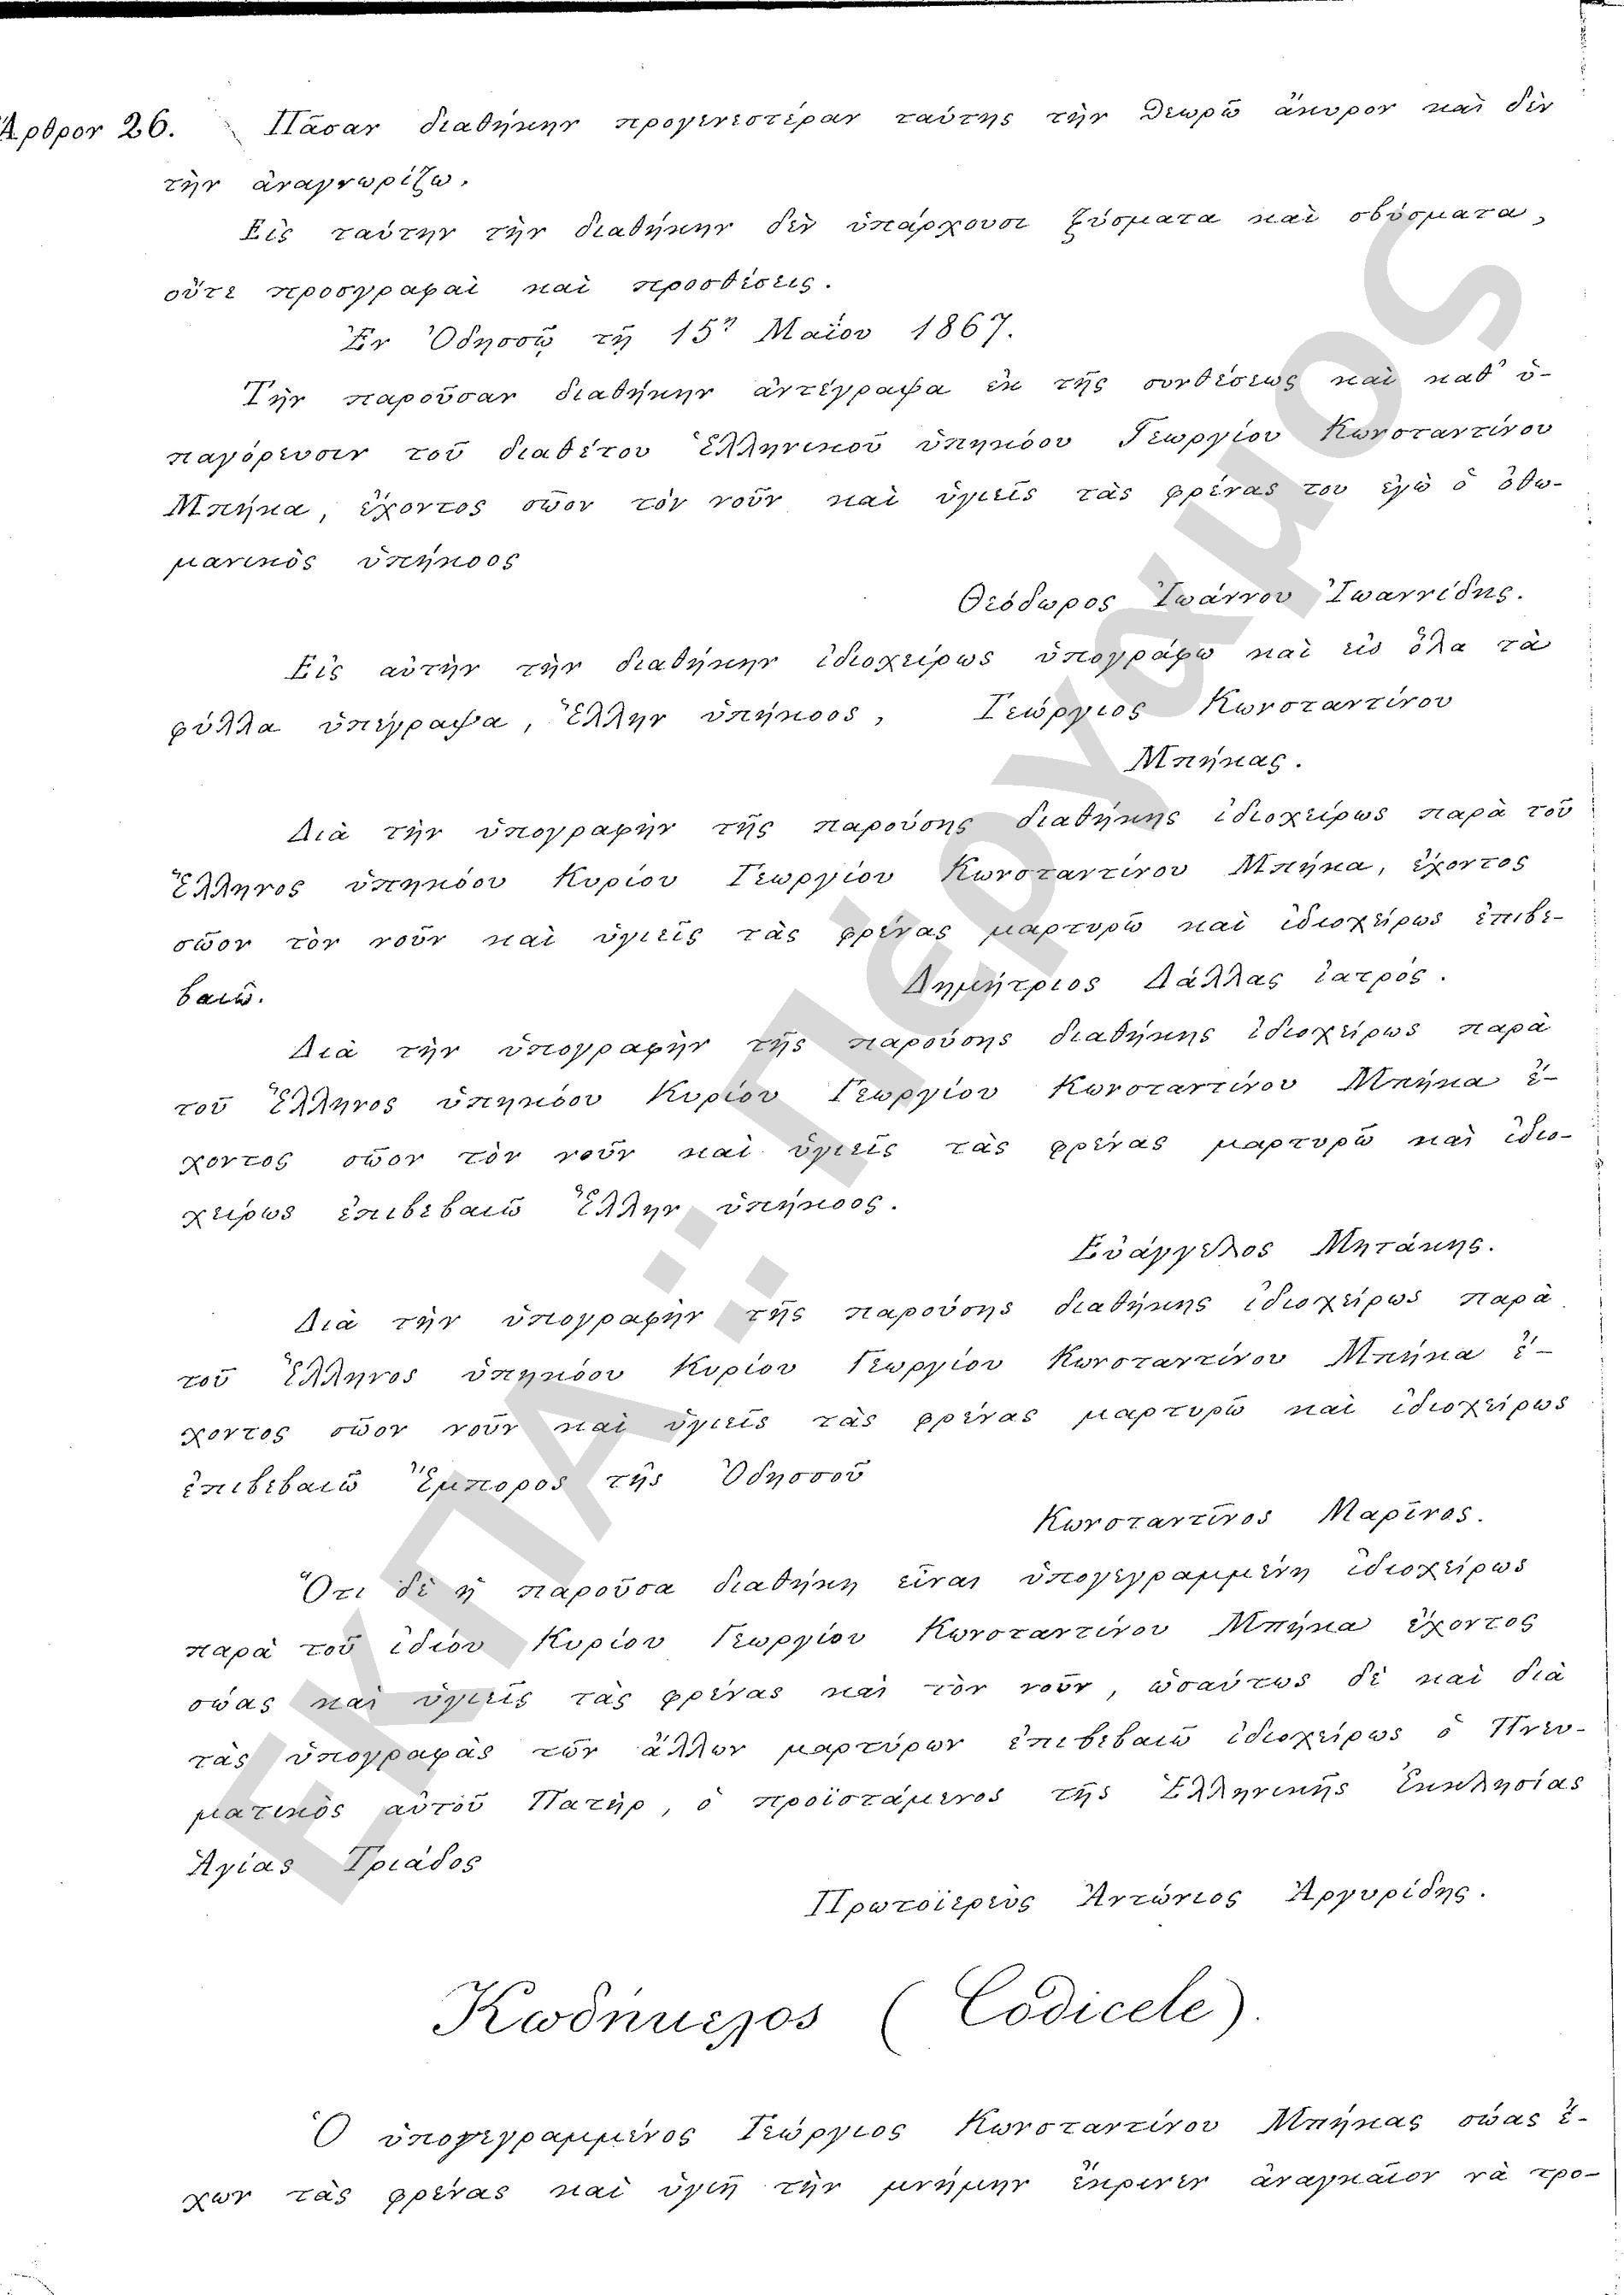 Ἄρθρον 26. Πᾶσαν διαθήκην προγενεστέραν ταύτης τὴν θεωρῶ ἄκυρον καὶ δὲν
τὴν ἀναγνωρίζω.
Εἰς ταύτην τὴν διαθήκην δὲν ὑπάρχουσι ξύσματα καὶ σβύσματα,
οὔτε προσγραφαὶ καὶ προσθέσεις.
Ἐν Ὀδησσῷ τῇ 15ῃ Μαΐου 1867.
Τὴν παροῦσαν διαθήκην ἀντέγραψα ἐκ τῆς συνθέσεως καὶ καθ' ὑ-
παγόρευσιν τοῦ διαθέτου Ἑλληνικοῦ ὑπηκόου Γεωργίου Κωνσταντίνου
Μπήκα, ἔχοντος σῶον τὸν νοῦν καὶ ὑγιεῖς τὰς φρένας του ἐγὼ ὁ ὀθω-
μανικὸς ὑπήκοος
Θεόδωρος Ἰωάννου Ἰωαννίδης.
Εἰς αὐτὴν τὴν διαθήκην ἰδιοχείρως ὑπογράφω καὶ εἰς ὅλα τὰ
φύλλα ὑπέγραψα, Ἕλλην ὑπήκοος, Γεώργιος Κωνσταντίνου
Μπήκας.
Διὰ τὴν ὑπογραφὴν τῆς παρούσης διαθήκης ἰδιοχείρως παρὰ τοῦ
Ἕλληνος ὑπηκόου Κυρίου Γεωργίου Κωνσταντίνου Μπήκα, ἔχοντος
σῶον τὸν νοῦν καὶ ὑγιεῖς τὰς φρένας μαρτυρῶ καὶ ἰδιοχείρως ἐπιβε-
βαιῶ. Δημήτριος Δάλλας ἰατρός.
Διὰ τὴν ὑπογραφὴν τῆς παρούσης διαθήκης ἰδιοχείρως παρὰ
τοῦ Ἕλληνος ὑπηκόου Κυρίου Γεωργίου Κωνσταντίνου Μπήκα ἔ-
χοντος σῶον τὸν νοῦν καὶ ὑγιεῖς τὰς φρένας μαρτυρῶ καὶ ἰδιο-
χείρως ἐπιβεβαιῶ Ἕλλην ὑπήκοος.
Εὐάγγελος Μητάκης.
Διὰ τὴν ὑπογραφὴν τῆς παρούσης διαθήκης ἰδιοχείρως παρὰ
τοῦ Ἕλληνος ὑπηκόου Κυρίου Γεωργίου Κωνσταντίνου Μπήκα ἔ-
χοντος σῶον νοῦν καὶ ὑγιεῖς τὰς φρένας μαρτυρῶ καὶ ἰδιοχείρως
ἐπιβεβαιῶ Ἔμπορος τῆς Ὀδησσοῦ
Κωνσταντῖνος Μαρῖνος.
Ὅτι δὲ ἡ παροῦσα διαθήκη εἶναι ὑπογεγραμμένη ἰδιοχείρως
παρὰ τοῦ ἰδίου Κυρίου Γεωργίου Κωνσταντίνου Μπήκα ἔχοντος
σώας καὶ ὑγιεῖς τὰς φρένας καὶ τὸν νοῦν, ὡσαύτως δὲ καὶ διὰ
τὰς ὑπογραφὰς τῶν ἄλλων μαρτύρων ἐπιβεβαιῶ ἰδιοχείρως ὁ Πνευ-
ματικὸς αὐτοῦ Πατὴρ, ὁ προϊστάμενος τῆς Ἑλληνικῆς Ἐκκλησίας
Ἁγίας Τριάδος
Πρωτοϊερεὺς Ἀντώνιος Ἀργυρίδης.
Κωδήκελος (Codicele).
Ὁ ὑπογεγραμμένος Γεώργιος Κωνσταντίνου Μπήκας σώας ἔ-
χων τὰς φρένας καὶ ὑγιῆ τὴν μνήμην ἔκρινεν ἀναγκαῖον νὰ τρο-
ΕΚΠΑ: Πέργαμος